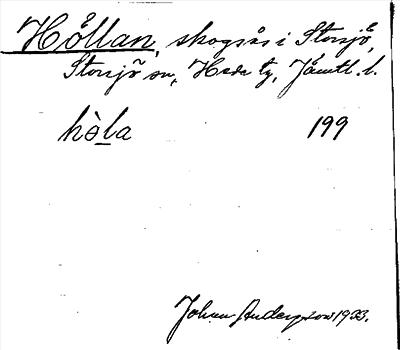 Hållan, skogsås i Storsjö,
Storsjö sn, Hede tg, Jämtl. l.
hòla 199
Johan Anderzson 1933.